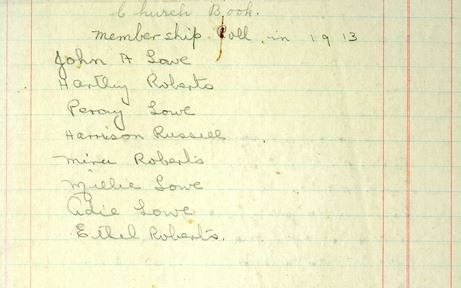 Church Book.
Membership Roll in 1913
John A Lowe
Hartley Roberts
Percy Lowe
Harrison Russell
Mina Roberts
Millie Lowe
Adie Lowe
Ethel Roberts.